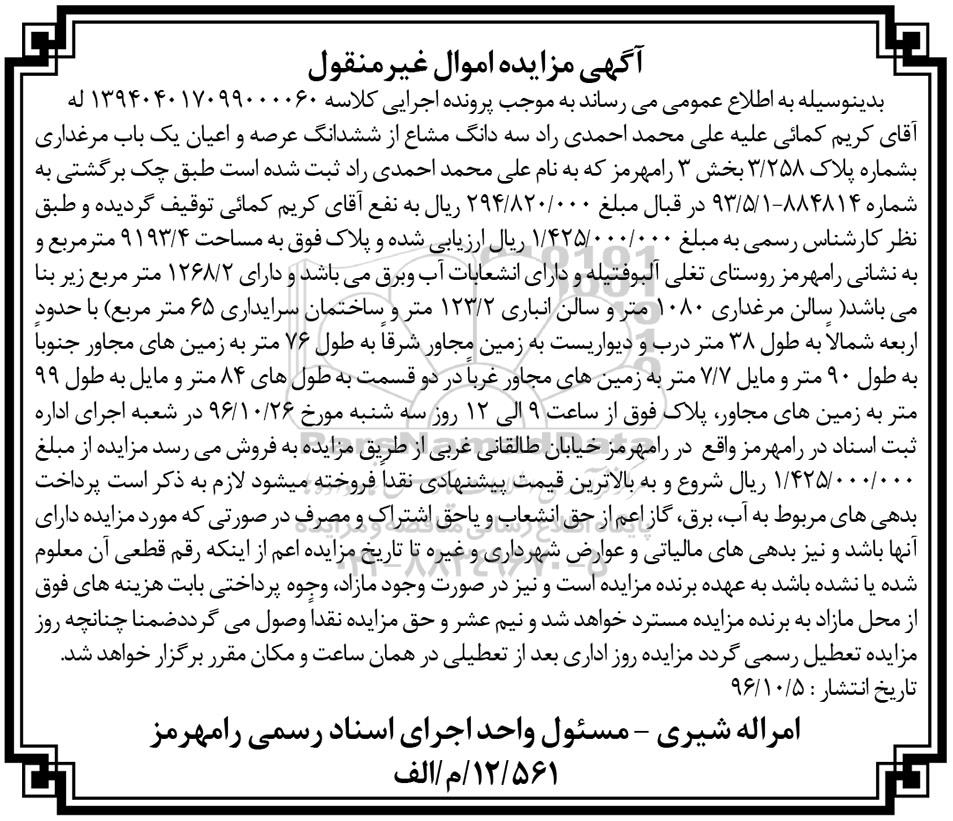 آگهی مزایده اموال غیرمنقول
بدینوسیله به اطلاع عمومی می رساند به موجب پرونده اجرایی کلاسه ۱۳۹۴۰۴۰۱۷۰۹۹۰۰۰۰۶۰ له
آقای کریم کمائی علیه علی محمد احمدی راد سه دانگ مشاع از ششدانگ عرصه و اعیان یک باب مرغداری
بشماره پلاک ۳/۲۵۸ بخش ۳ رامهرمز که به نام علی محمد احمدی راد ثبت شده است طبق چک برگشتی به
شماره ۸۸۴۸۱۴-۹۳/۵/۱ در قبال مبلغ ۲۹۴/۸۲۰/۰۰۰ ریال به نفع آقای کریم کمائی توقیف گردیده و طبق
نظر کارشناس رسمی به مبلغ ۱/۴۲۵/۰۰۰/۰۰۰ ریال ارزیابی شده و پلاک فوق به مساحت ۹۱۹۳/۴ مترمربع و
به نشانی رامهرمز روستای تغلی آلبوفتیله و دارای انشعابات آب وبرق می باشد و دارای ۱۲۶۸/۲ متر مربع زیر بنا
می باشد( سالن مرغداری ۱۰۸۰ متر و سالن انباری ۱۲۳/۲ متر و ساختمان سرایداری ۶۵ متر مربع) با حدود
اربعه شمالاً به طول ۳۸ متر درب و دیواریست به زمین مجاور شرقاً به طول ۷۶ متر به زمین های مجاور جنوباً
به طول ۹۰ متر و مایل ۷/۷ متر به زمین های مجاور غرباً در دو قسمت به طول های ۸۴ متر و مایل به طول ۹۹
متر به زمین های مجاور، پلاک فوق از ساعت ۹ الی ۱۲ روز سه شنبه مورخ ۹۶/۱۰/۲۶ در شعبه اجرای اداره
ثبت اسناد در رامهرمز واقع در رامهرمز خیابان طالقانی غربی از طریق مزایده به فروش می رسد مزایده از مبلغ
۱/۴۲۵/۰۰۰/۰۰۰ ریال شروع و به بالاترین قیمت پیشنهادی نقداً فروخته میشود لازم به ذکر است پرداخت
بدهی های مربوط به آب، برق، گاز اعم از حق انشعاب و یاحق اشتراک و مصرف در صورتی که مورد مزایده دارای
آنها باشد و نیز بدهی های مالیاتی و عوارض شهرداری و غیره تا تاریخ مزایده اعم از اینکه رقم قطعی آن معلوم
شده یا نشده باشد به عهده برنده مزایده است و نیز در صورت وجود مازاد، وجوه پرداختی بابت هزینه های فوق
از محل مازاد به برنده مزایده مسترد خواهد شد و نیم عشر و حق مزایده نقداً وصول می گرددضمنا چنانچه روز
مزایده تعطیل رسمی گردد مزایده روز اداری بعد از تعطیلی در همان ساعت و مکان مقرر برگزار خواهد شد.
تاریخ انتشار : ۹۶/۱۰/۵
امراله شیری - مسئول واحد اجرای اسناد رسمی رامهرمز
۱۲/۵۶۱/م/الف
ParsNamadData
پایگاه اطلاع رسانی مناقصه و مزایده
۰۲۱-۸۸۳۴۹۶۷۰-۵